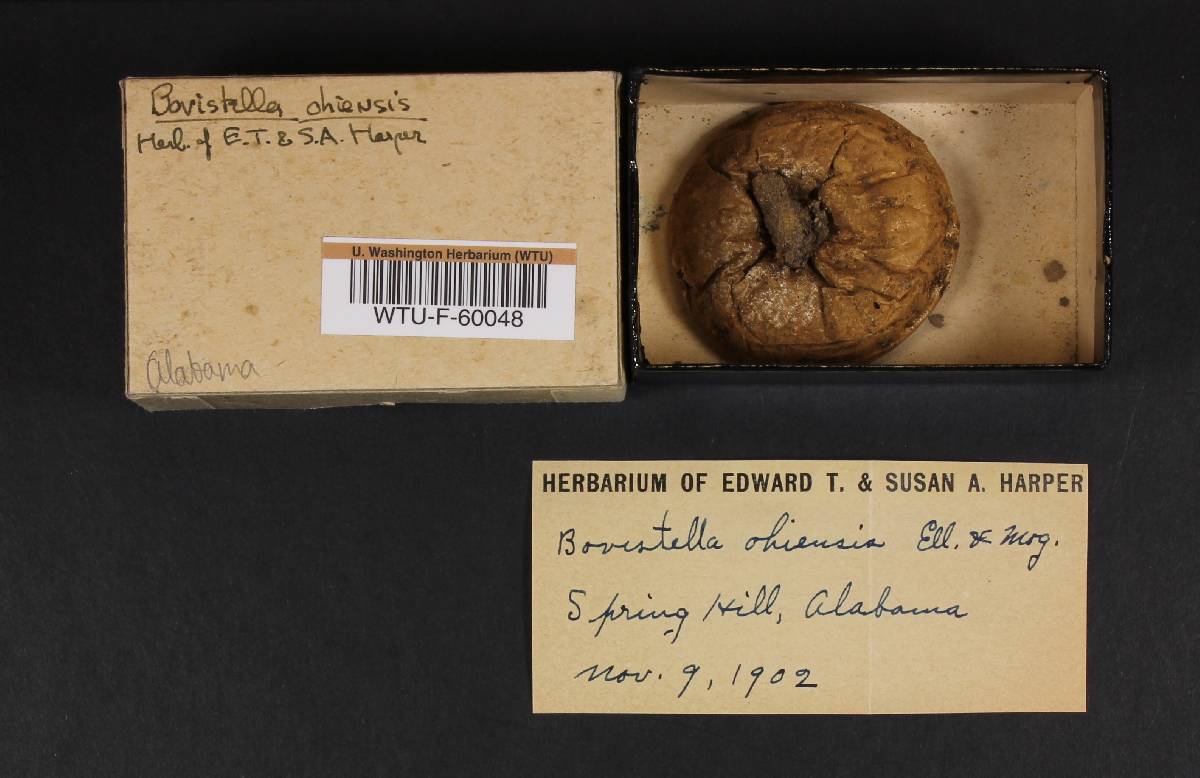 Bovistella ohiensis
Herb. of E.T. & S.A. Harper
U. Washington Herbarium (WTU)
WTU-F-60048
Alabama
HERBARIUM OF EDWARD T. & SUSAN A. HARPER
Bovistella ohiensis Ell. & Mog.
Spring Hill, Alabama
Nov. 9, 1902